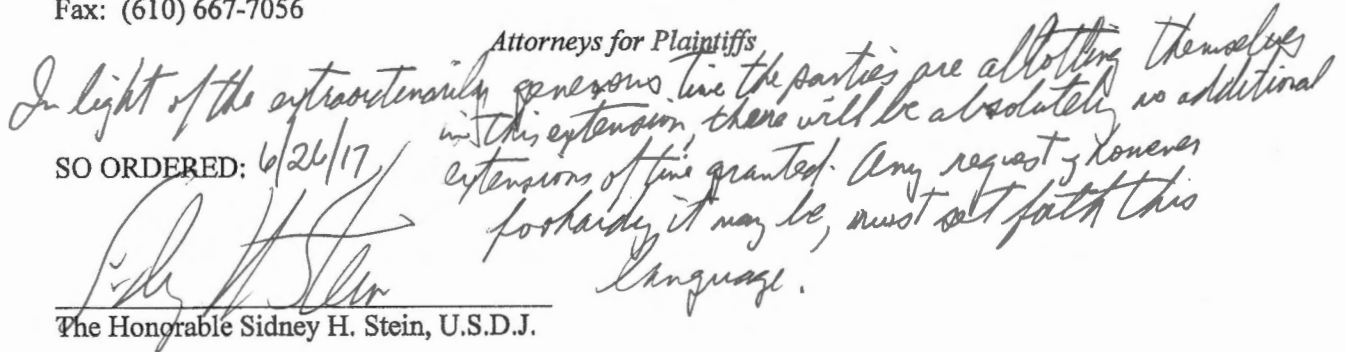 Fax: (610) 667-7056
Attorneys for Plaintiffs
In light of the extraordinarily generous time the parties are allotting themselves
in this extension, there will be absolutely no additional
extensions of time granted. Any request, however
foolhardy it may be, must set forth this
language.
SO ORDERED: 6/26/17
Sidney H. Stein
The Honorable Sidney H. Stein, U.S.D.J.